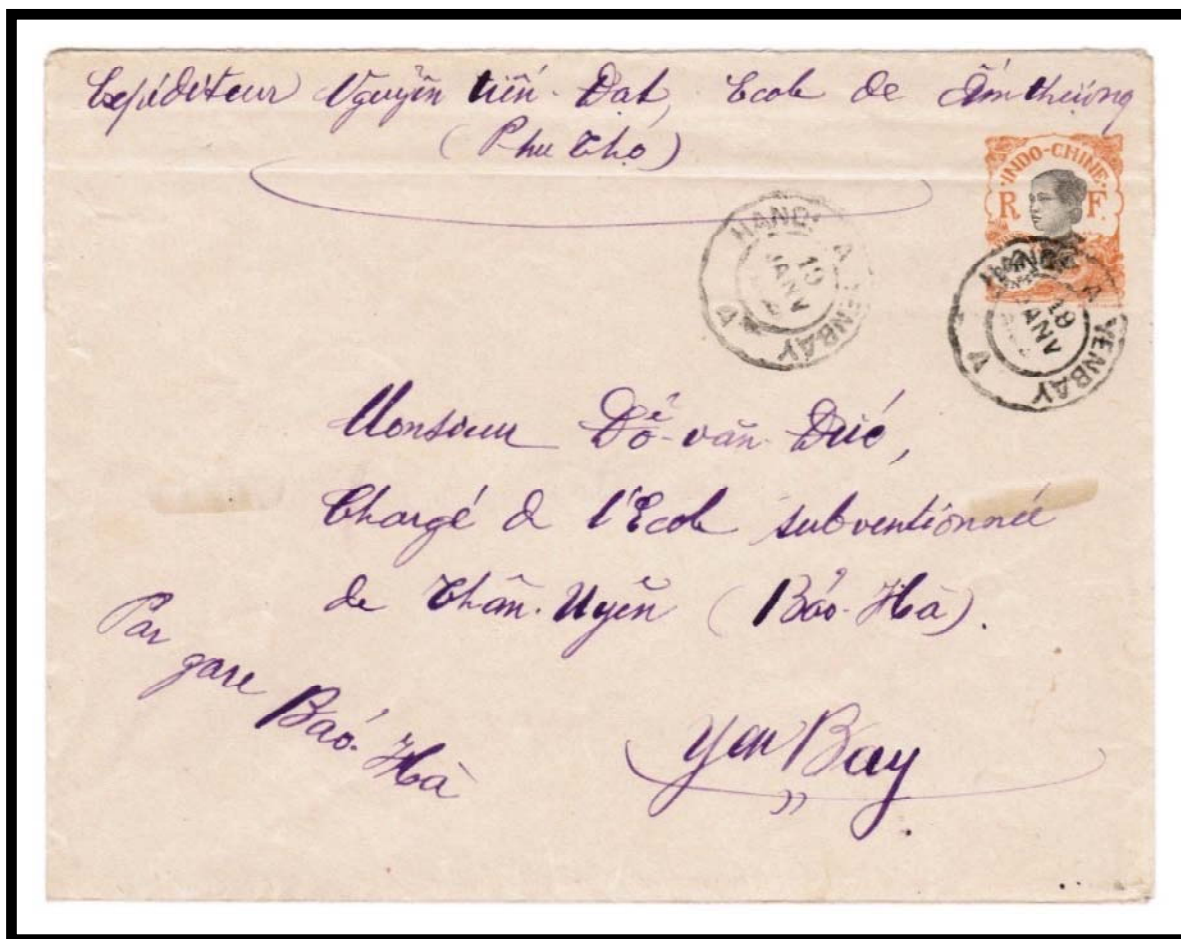 Expéditeur Nguyễn tiến-Đạt, Ecole de Ấm thượng
(Phu Thọ)
INDO-CHINE
R F
HANOI A YENBAY
19
JANV
A
HANOI A YENBAY
19
JANV
A
Monsieur Đỗ-văn-Đức,
Chargé de l'Ecole subventionnée
de Thân-Uyên (Bảo-Hà).
Par gare Bảo-Hà
Yen Bay